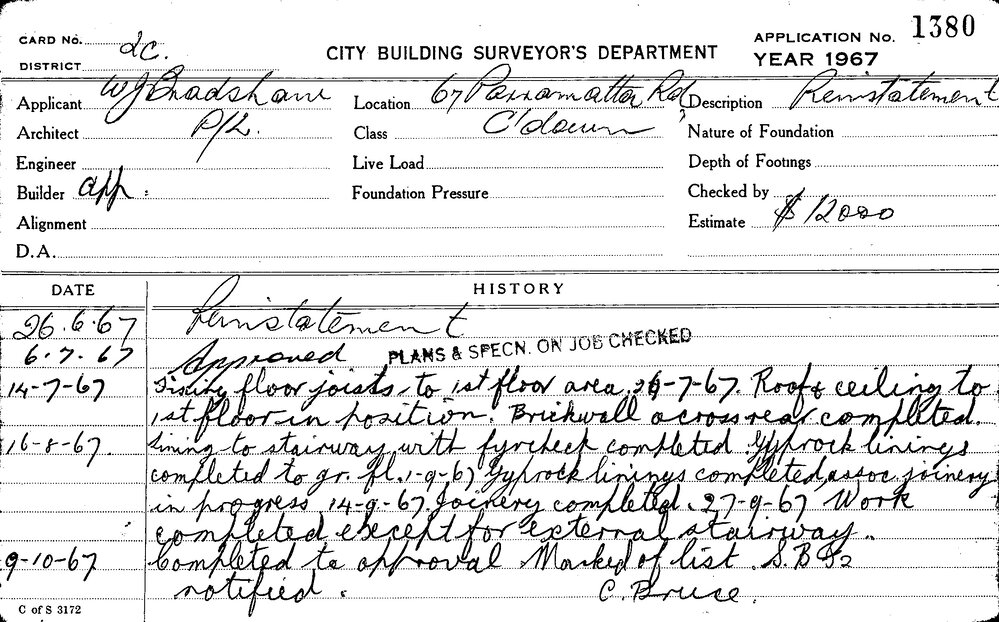 CARD No. 2C. CITY BUILDING SURVEYOR'S DEPARTMENT APPLICATION No. 1380
DISTRICT YEAR 1967
Applicant W J Bradshaw Location 67 Parramatta Rd, Description Reinstatement
Architect P/L. Class C'down Nature of Foundation
Engineer Live Load Depth of Footings
Builder app: Foundation Pressure Checked by
Alignment Estimate $12000
D.A.
DATE HISTORY
26.6.67 Reinstatement
6.7.67 Approved PLANS & SPECN. ON JOB CHECKED
14-7-67 Fixing floor joists to 1st floor area. 26-7-67. Roof & ceiling to
1st floor in position. Brickwall across rear completed.
16-8-67. Lining to stairway with fyrcheck completed. Gyprock linings
completed to gr. fl. 1-9-67 Gyprock linings completed, assoc. joinery
in progress 14-9-67. Joinery completed. 27-9-67 Work
completed except for external stairway.
9-10-67 Completed to approval. Marked of list.
notified. C. Bruce.
C of S 3172